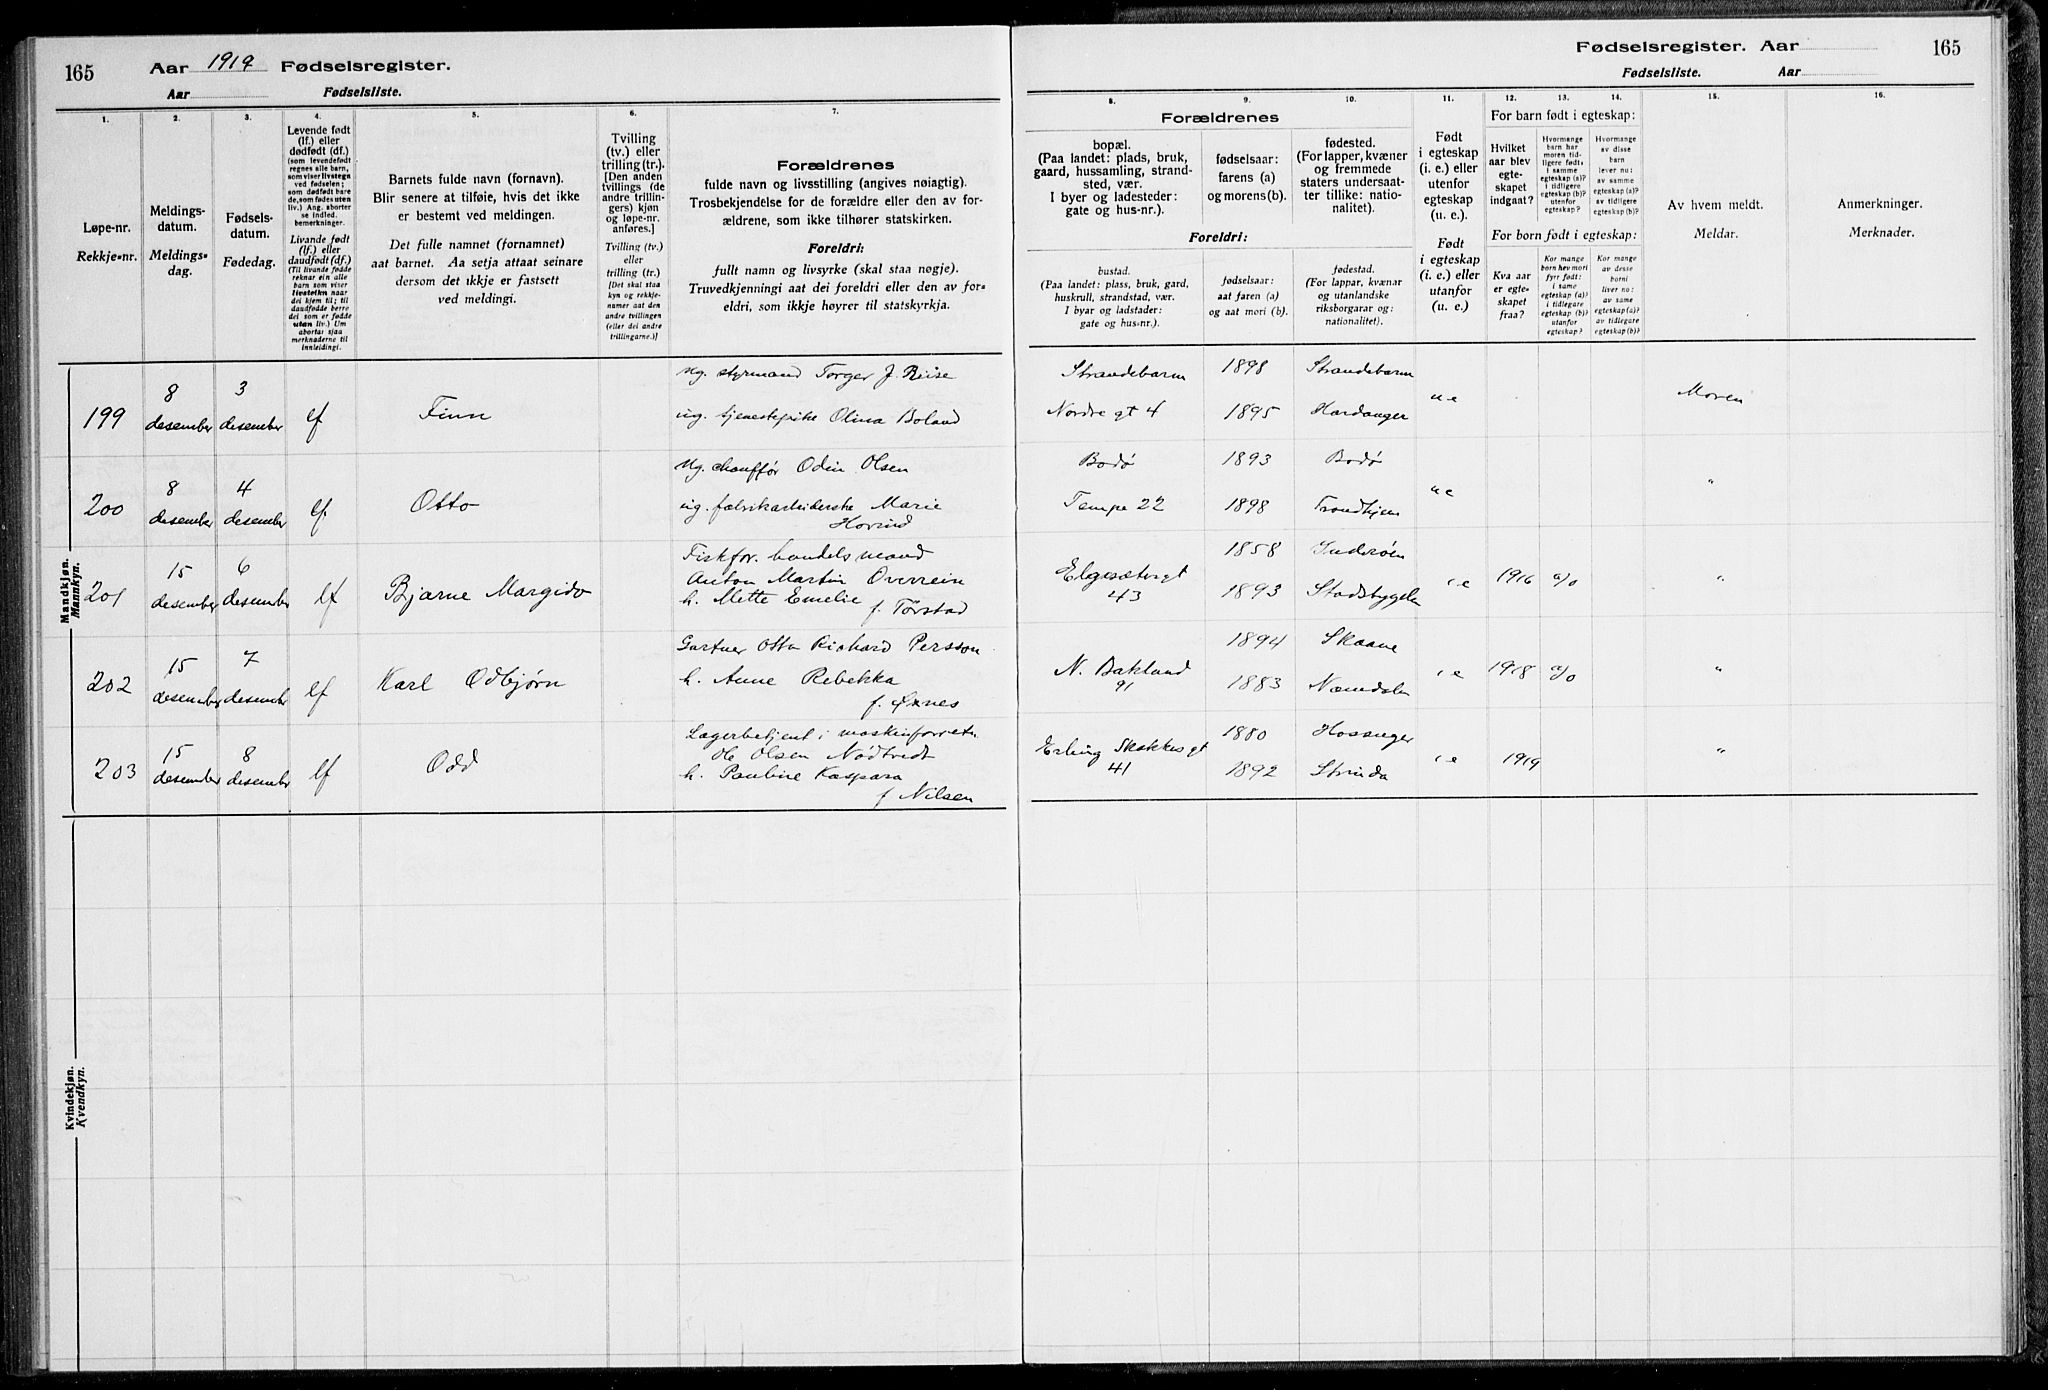 165
Aar 1919 Fødselsregister.
Aar Fødselsliste.
1. 2. 3. 4. 5. 6. 7.
Løpe-nr.
Rekkje-nr.
Meldings-
datum.
Meldings-
dag.
Fødsels-
datum.
Fødedag.
Levende født
(lf.) eller
dødfødt (df.)
(som levendefødt
regnes alle barn,
som viser livstegn
ved fødselen;
som dødfødt bare
de, som fødes uten
liv.) Ang. aborter
se indled.
bemerkninger.
Livande født
(lf.) eller
daudfødt (df.)
(Til livande fødde
reknar ein alle
barn som viser
livsteikn naar
dei kjem til; til
daudfødde berre
dei som er fødde
utan liv.) Um
abortar sjaa
merknaderne til
innleidingi.
Barnets fulde navn (fornavn).
Blir senere at tilføie, hvis det ikke
er bestemt ved meldingen.
Det fulle namnet (fornamnet)
aat barnet. Aa setja attaat seinare
dersom det ikkje er fastsett
ved meldingi.
Tvilling
(tv.) eller
trilling (tr.).
[Den anden
tvillings (de
andre trillin-
gers) kjøn
og løpe-nr.
anføres.]
Tvilling (tv.)
eller
trilling (tr.)
[Det skal staa
kyn og rekkje-
numer aat den
andre tvillingen
(eller dei andre
trillingarne.)]
Forældrenes
fulde navn og livsstilling (angives nøiagtig).
Trosbekjendelse for de forældre eller den av for-
ældrene, som ikke tilhører statskirken.
Foreldri:
fullt namn og livsyrke (skal staa nøgje).
Truvedkjenningi aat dei foreldri eller den av for-
eldri, som ikkje høyrer til statskyrkja.
Mandkjøn.
Mannkyn.
199
8
desember
3
desember
lf
Finn
Ug. styrmand Torger J.
ug. tjenestepike Olina Boland
200
8
desember
4
desember
lf.
Otto
Ug. chauffør Odin Olsen
ug. fabrikarbeiderske Marie
Hovind
201
15
desember
6
desember
lf
Bjarne Margido
Fiskfor. handelsmand
Anton Martin Overrein
h. Mette Emelie f. Tørstad
202
15
desember
7
desember
lf
Karl Odbjørn
Gartner Otto Richard Persson
h. Anne Rebekka
f. Øxnes
203
15
desember
8
desember
lf
Odd
Lagerbetjent i maskinforretn
Ole Olsen Nødtvedt
h. Pauline Kaspara
f Nilsen
Kvindekjøn.
Kvendkyn.
Fødselsregister. Aar 165
Fødselsliste. Aar
8. 9. 10. 11. 12. 13. 14. 15. 16.
Forældrenes
bopæl.
(Paa landet: plads, bruk,
gaard, hussamling, strand-
sted, vær.
I byer og ladesteder:
gate og hus-nr.).
fødselsaar:
farens (a)
og morens (b).
fødested.
(For lapper, kvæner
og fremmede
staters undersaat-
ter tillike: natio-
nalitet).
Foreldri:
bustad.
(Paa landet: plass, bruk, gard,
huskrull, strandstad, vær.
I byar og ladstader:
gate og hus-nr.).
fødselsaar:
aat faren (a)
og aat mori (b).
fødestad.
(For lappar, kvænar
og utanlandske
riksborgarar og:
nationalitet).
Født
i egteskap
(i. e.) eller
utenfor
egteskap
(u. e.).
Født
i egteskap
(i. e.) eller
utanfor
(u. e.)
For barn født i egteskap:
Hvilket
aar blev
egte-
skapet
indgaat?
Hvormange
barn har
moren tid-
ligere født:
i samme
egteskap (a)?
i tidligere
egteskap (b)?
utenfor
egteskap?
Hvormange
av disse
barn
lever nu:
av samme
egteskap (a)?
av tidligere
egteskap (b)?
For born født i egteskap:
Kva aar
er egte-
skapet
fraa?
Kor mange
born hev mori
fyrr født:
i same
egteskap (a)?
i tidlegare
egteskap (b)?
utanfor
egteskap?
Kor mange
av desse
borni
liver no:
av same
egteskap (a)?
av tidlegare
egteskap (b)?
Av hvem meldt.
Meldar.
Anmerkninger.
Merknader.
Strandebarm 1898 Strandebarm
Nordre gt 4 1895 Hardanger
u e
Moren
Bodø 1893 Bodø
Tempe 22 1898 Trondhjem
u e
"
Elgesætergt
43
1858 Inderøen
1893 Stadsbygden
i e 1916 a/o
"
N. Bakland
91
1894 Skaane
1883 Namdalen
i e 1918 a/o
"
Erling Skakkes gt
41
1880
1892 Strinda
i e 1919
"